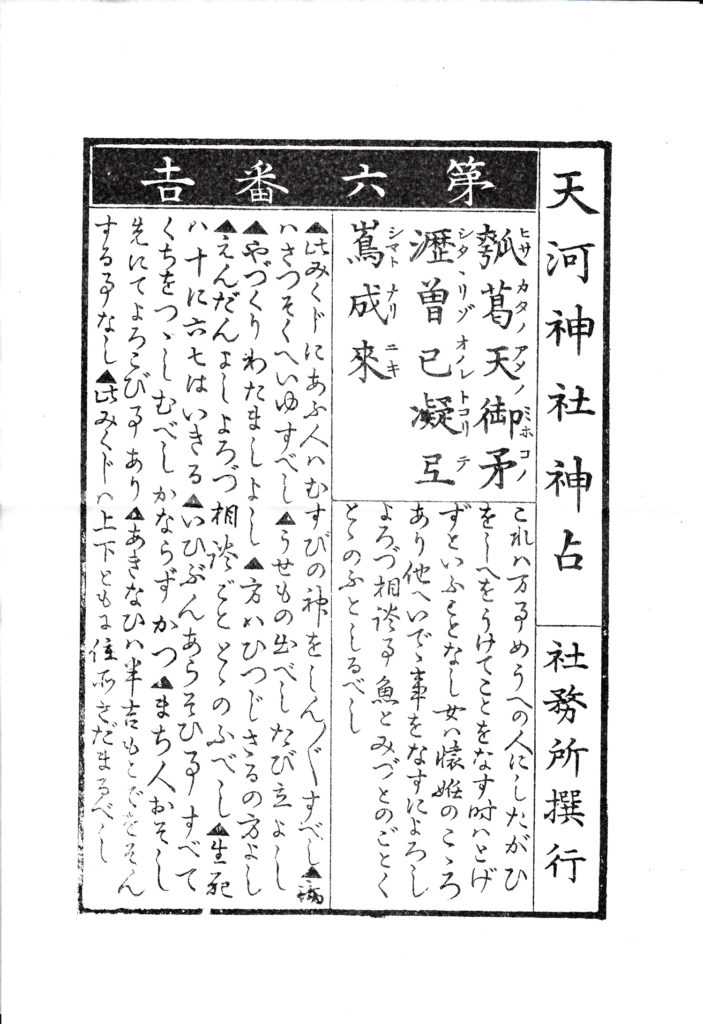 天河神社神占 社務所撰行
第六番吉
瓠葛天御矛
ヒサカタノアメノミホコノ
瀝曽已凝弖
シタヽリゾオノレトコリテ
嶌成來
シマトナリニキ
これハ万事めうへの人にしたがひ
をしへをうけてことをなす時ハとげ
ずといふことなし女ハ懐妊のこゝろ
あり他へいでゝ事をなすによろし
よろづ相談事魚とみづとのごとく
とゝのふとしるべし
▲此みくじにあふ人ハむすびの神をしん〴〵すべし▲病
ハさつそくへいゆすべし▲うせもの出べし たび立よし
▲やづくりわたましよし▲方ハひつじさるの方よし
▲えんだんよしよろづ相談ごととゝのふべし▲生死
ハ十に六七はいきる▲いひぶんあらそひ事すべて
くちをつゝしむべしかならずかつ▲まち人おそし
先にてよろこび事あり▲あきなひハ半吉もとでをそん
する事なし▲此みくじハ上下ともに住所さだまるべし